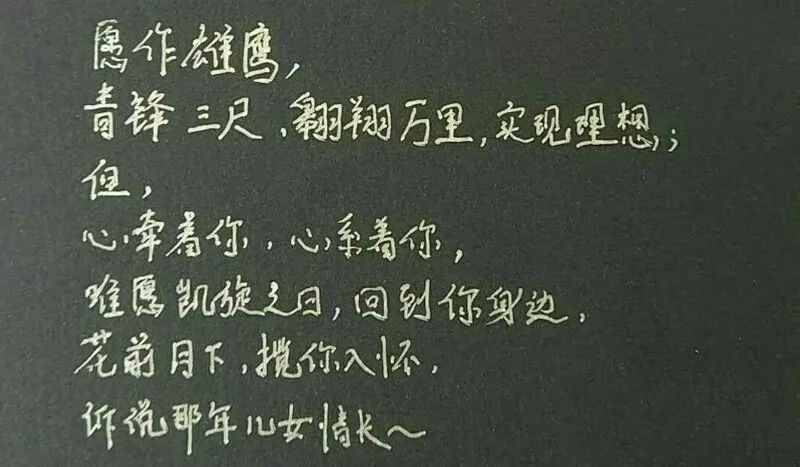 愿作雄鹰，
青锋三尺、翱翔万里，实现理想；
但，
心牵着你，心系着你，
唯愿凯旋之日，回到你身边，
花前月下，揽你入怀，
诉说那年儿女情长～